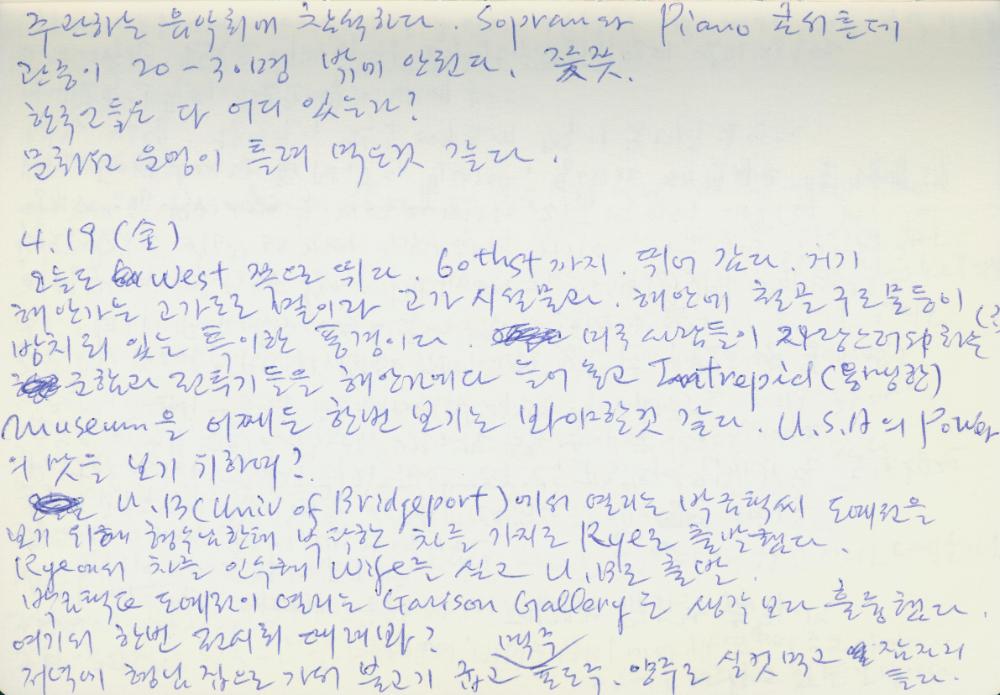 주관하는 음악회에 참석하다. Soprano와 Piano 콘서트인데
관중이 20-30명 밖에 안된다. 쯪쯧.
한국인들은 다 어디 있는가?
문화원 운영이 틀려 먹은것 같다.
4.19 (金)
오늘도 West 쪽으로 뛰다. 60th st까지. 뛰어 갔다. 거기
해안가는 고가도로 옆이라 고가 시설물과. 해안에 철골 구조물등이
방치되 있는 특이한 풍경이다. 미국 사람들이 자랑스러워하는
군함과 전투기들을 해안가에다 늘어 놓고 Intrepid (용맹한)
museum을 어째든 한번 보기는 봐야할것 같다. U.S.A의 Power
의 맛을 보기 위하여?
U.B (Univ of Bridgeport)에서 열리는 박 도예전을
보기 위해 형수님한테 부탁한 차를 가지러 Rye로 출발했다.
Rye에서 차를 인수해 Wife를 싣고 U.B로 출발.
도예전이 열리는 Garison Gallery는 생각보다 훌륭했다.
여기서 한번 전시회 해봐?
맥주
저녁에 형님 집으로 가서 불고기 굽고 포도주. 양주로 실컷 먹고 잠자리
들다.